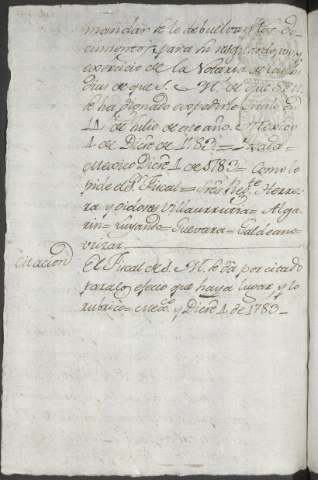 mandar se le debuelvan los do
cumentos para su resguardo, y
exercicio de la Notaria de
dias de que S. M.
se ha dignado expedirle titulo en
11 de Julio de este año. Mexico
1 de Dicre de 1783=
Mexico Dicre 1 de 1783= Como lo
pide el Sor Fiscal= Sres Regte Herre
ra y oidores Villaurrutia= Algarin
= Luyando= Guevara= Galdeano=
Citacion
El Fiscal de S. M. se da por citado
para el efecto que haya lugar, y lo
rubricó= Mexco y Dicre 1 de 1783=